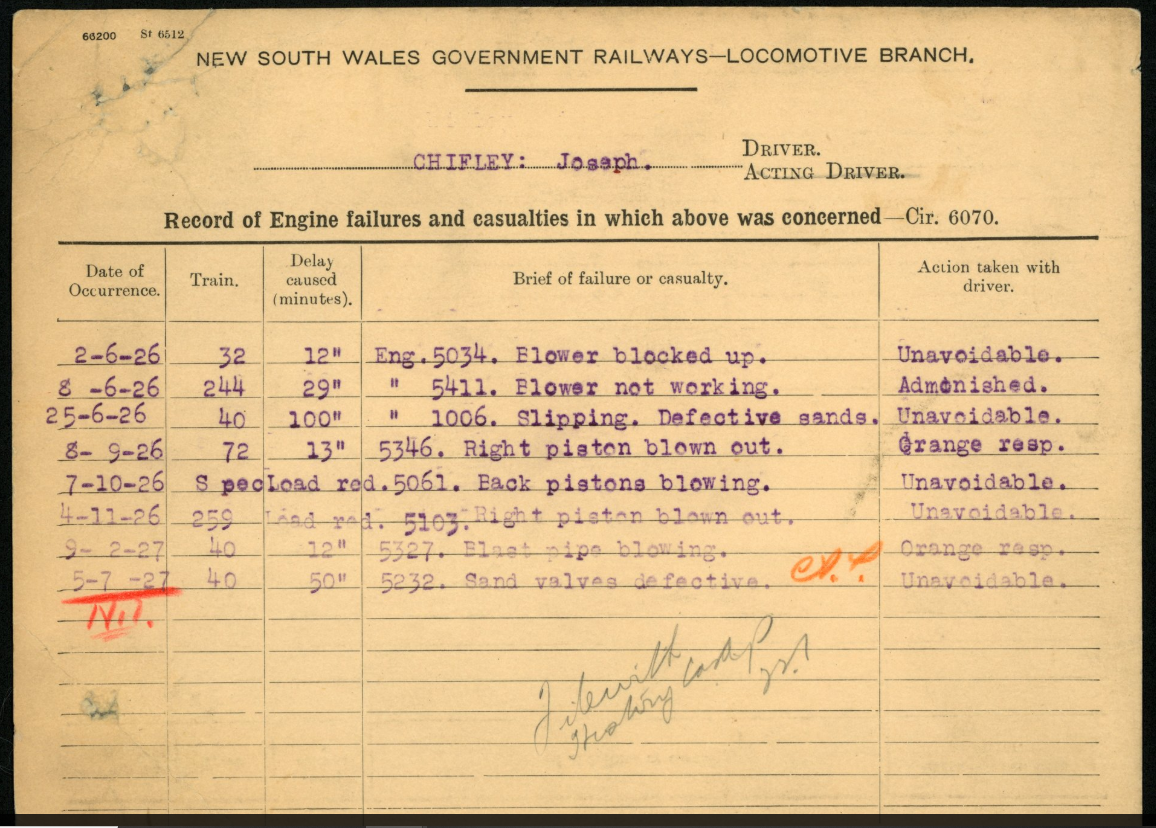 66200 St 6512
NEW SOUTH WALES GOVERNMENT RAILWAYS—LOCOMOTIVE BRANCH.
CHIFLEY: Joseph.
DRIVER.
ACTING DRIVER.
Record of Engine failures and casualties in which above was concerned—Cir. 6070.
Date of Occurrence. Train. Delay caused (minutes). Brief of failure or casualty. Action taken with driver.
2-6-26 32 12" Eng.5034. Blower blocked up. Unavoidable.
8 -6-26 244 29" " 5411. Blower not working. Admonished.
25-6-26 40 100" " 1006. Slipping. Defective sands. Unavoidable.
8- 9-26 72 13" 5346. Right piston blown out. Orange resp.
7-10-26 S pec Load red. 5061. Back pistons blowing. Unavoidable.
4-11-26 259 Load red. 5103. Right piston blown out. Unavoidable.
9- 2-27 40 12" 5327. Blast pipe blowing. Orange resp.
5-7 -27 40 50" 5232. Sand valves defective. Unavoidable.
Nil.
File with
History card